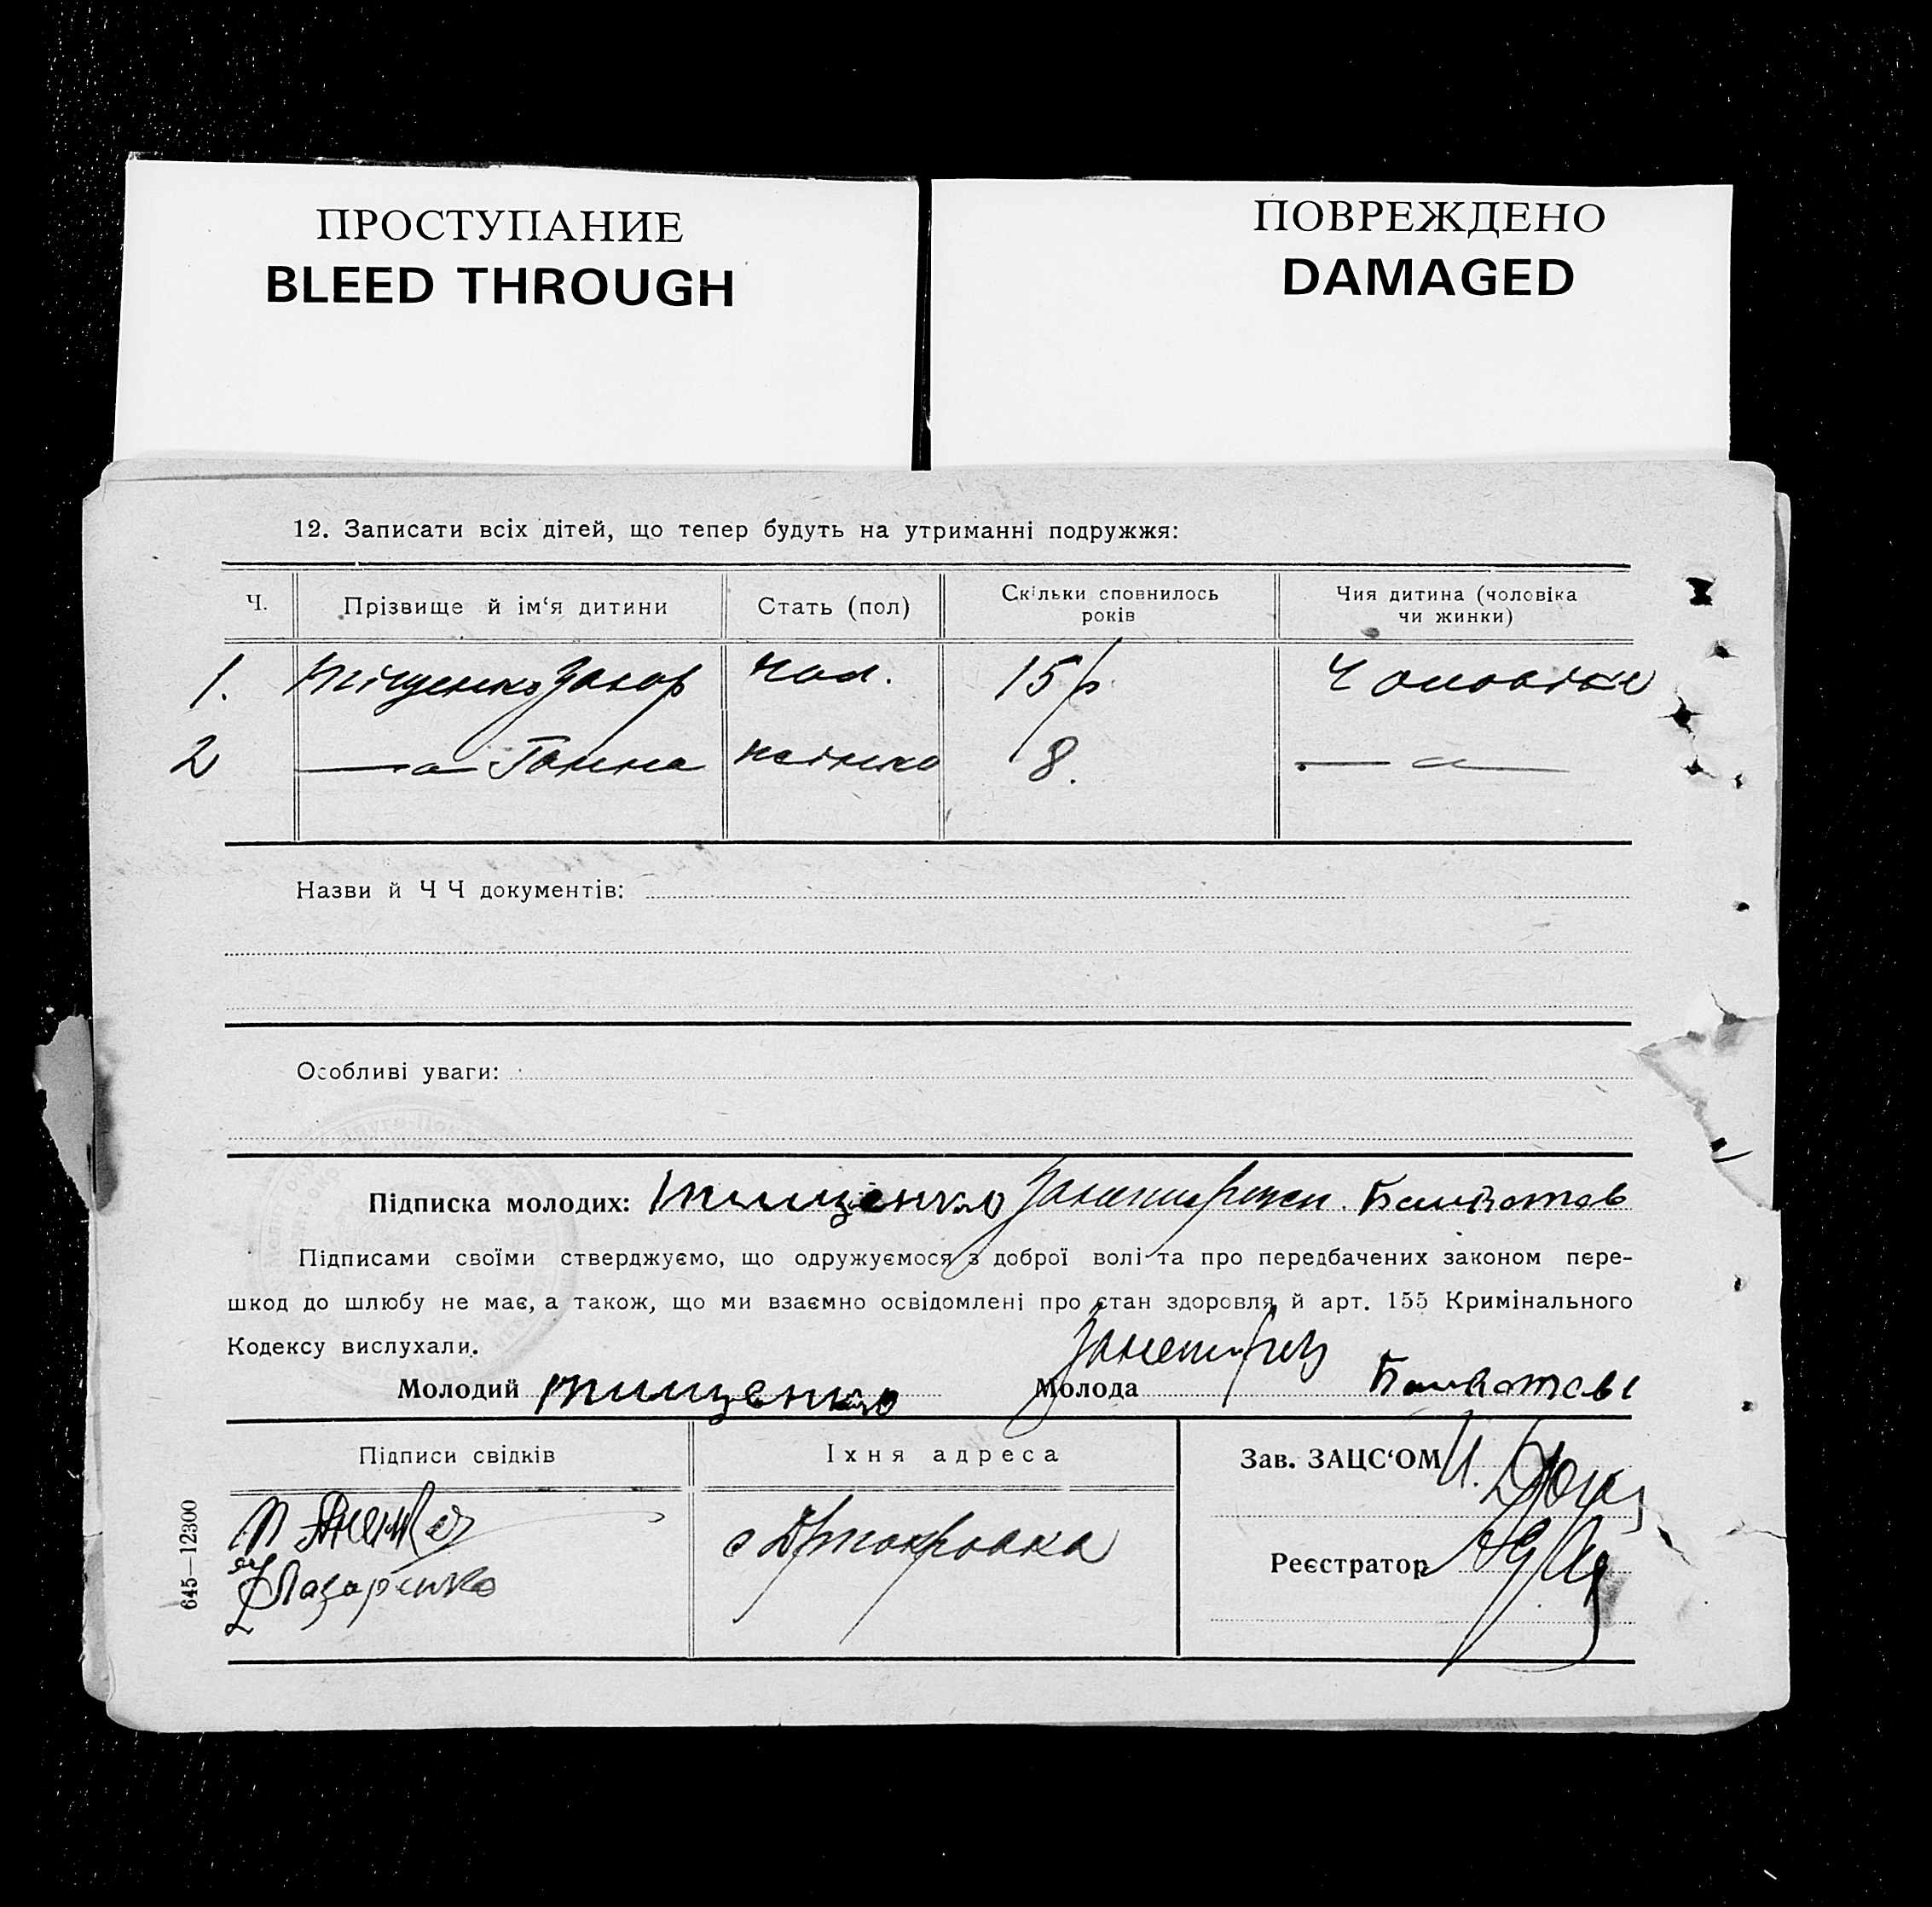 ПРОСТУПАНИЕ
BLEED THROUGH
ПОВРЕЖДЕНО
DAMAGED
12. Записати всіх дітей, що тепер будуть на утриманні подружжя:
Ч. Прізвище й ім‘я дитини Стать (пол) Скільки сповнилось років Чия дитина (чоловіка чи жинки)
1. Тіщенко Захар чол. 15 р Чоловіка
2 —„— Ганна жінка 8. —„—
Назви й Ч Ч документів:
Особливі уваги:
Підписка молодих: Тищенко
Підписами своїми стверджуємо, що одружуємося з доброї волі та про передбачених законом пере-
шкод до шлюбу не має, а також, що ми взаємно освідомлені про стан здоровля й арт. 155 Кримінального
Кодексу вислухали.
Молодий Тищенко Молода
Підписи свідків Їхня адреса Зав. ЗАЦС‘ОМ
Лазаренко
Реєстратор
645—12300